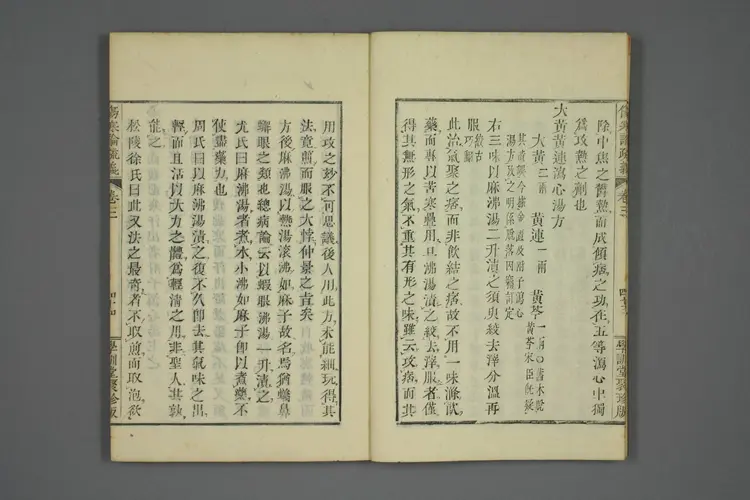 除中焦之舊熱而成傾痞之功在五等瀉心中獨
爲攻熱之劑也
大黃黃連瀉心湯方
大黃二兩 黃連一兩 黃芩一兩
右三味以麻沸湯二升漬之須臾絞去滓分溫再
服
此治氣聚之痞而非飲結之痞故不用一味滌飲
藥而專以苦寒疊用且沸湯漬之絞去滓服者僅
得其無形之氣不重其有形之味雖云攻痞而其
用攻之妙不可思議後人用此方未能細玩得其
法竟煎而服之大悖仲景之旨矣
方後麻沸湯以熱湯滾沸如麻子故名焉猶蟹鼻
蝦眼之類也總病論云以蝦眼沸湯一升漬之
尤氏曰以麻沸湯者煮水小沸如麻子即以煮藥不
使盡藥力也
周氏曰以麻沸湯漬之復不久即去其氣味之出
輕而且活以大力之體爲輕清之用非聖人其孰
能之
松陵徐氏曰此又法之最奇者不取煎而取泡欲
傷寒論疏義 卷三 四十四 學訓堂聚珍版